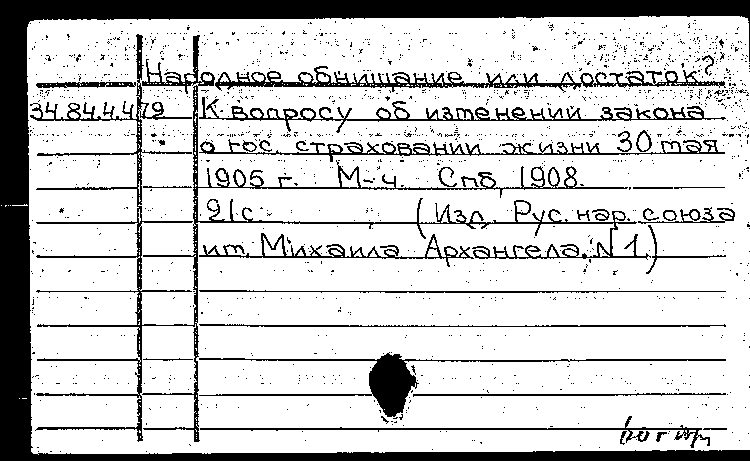 Народное обнищание или достаток?
34.84.4.479 К вопросу об изменении закона
о гос. страховании жизни 30 мая
1905 г. М-ч. Спб, 1908.
91с. (Изд. Рус. нар. союза
им. Михаила Архангела. N 1.)